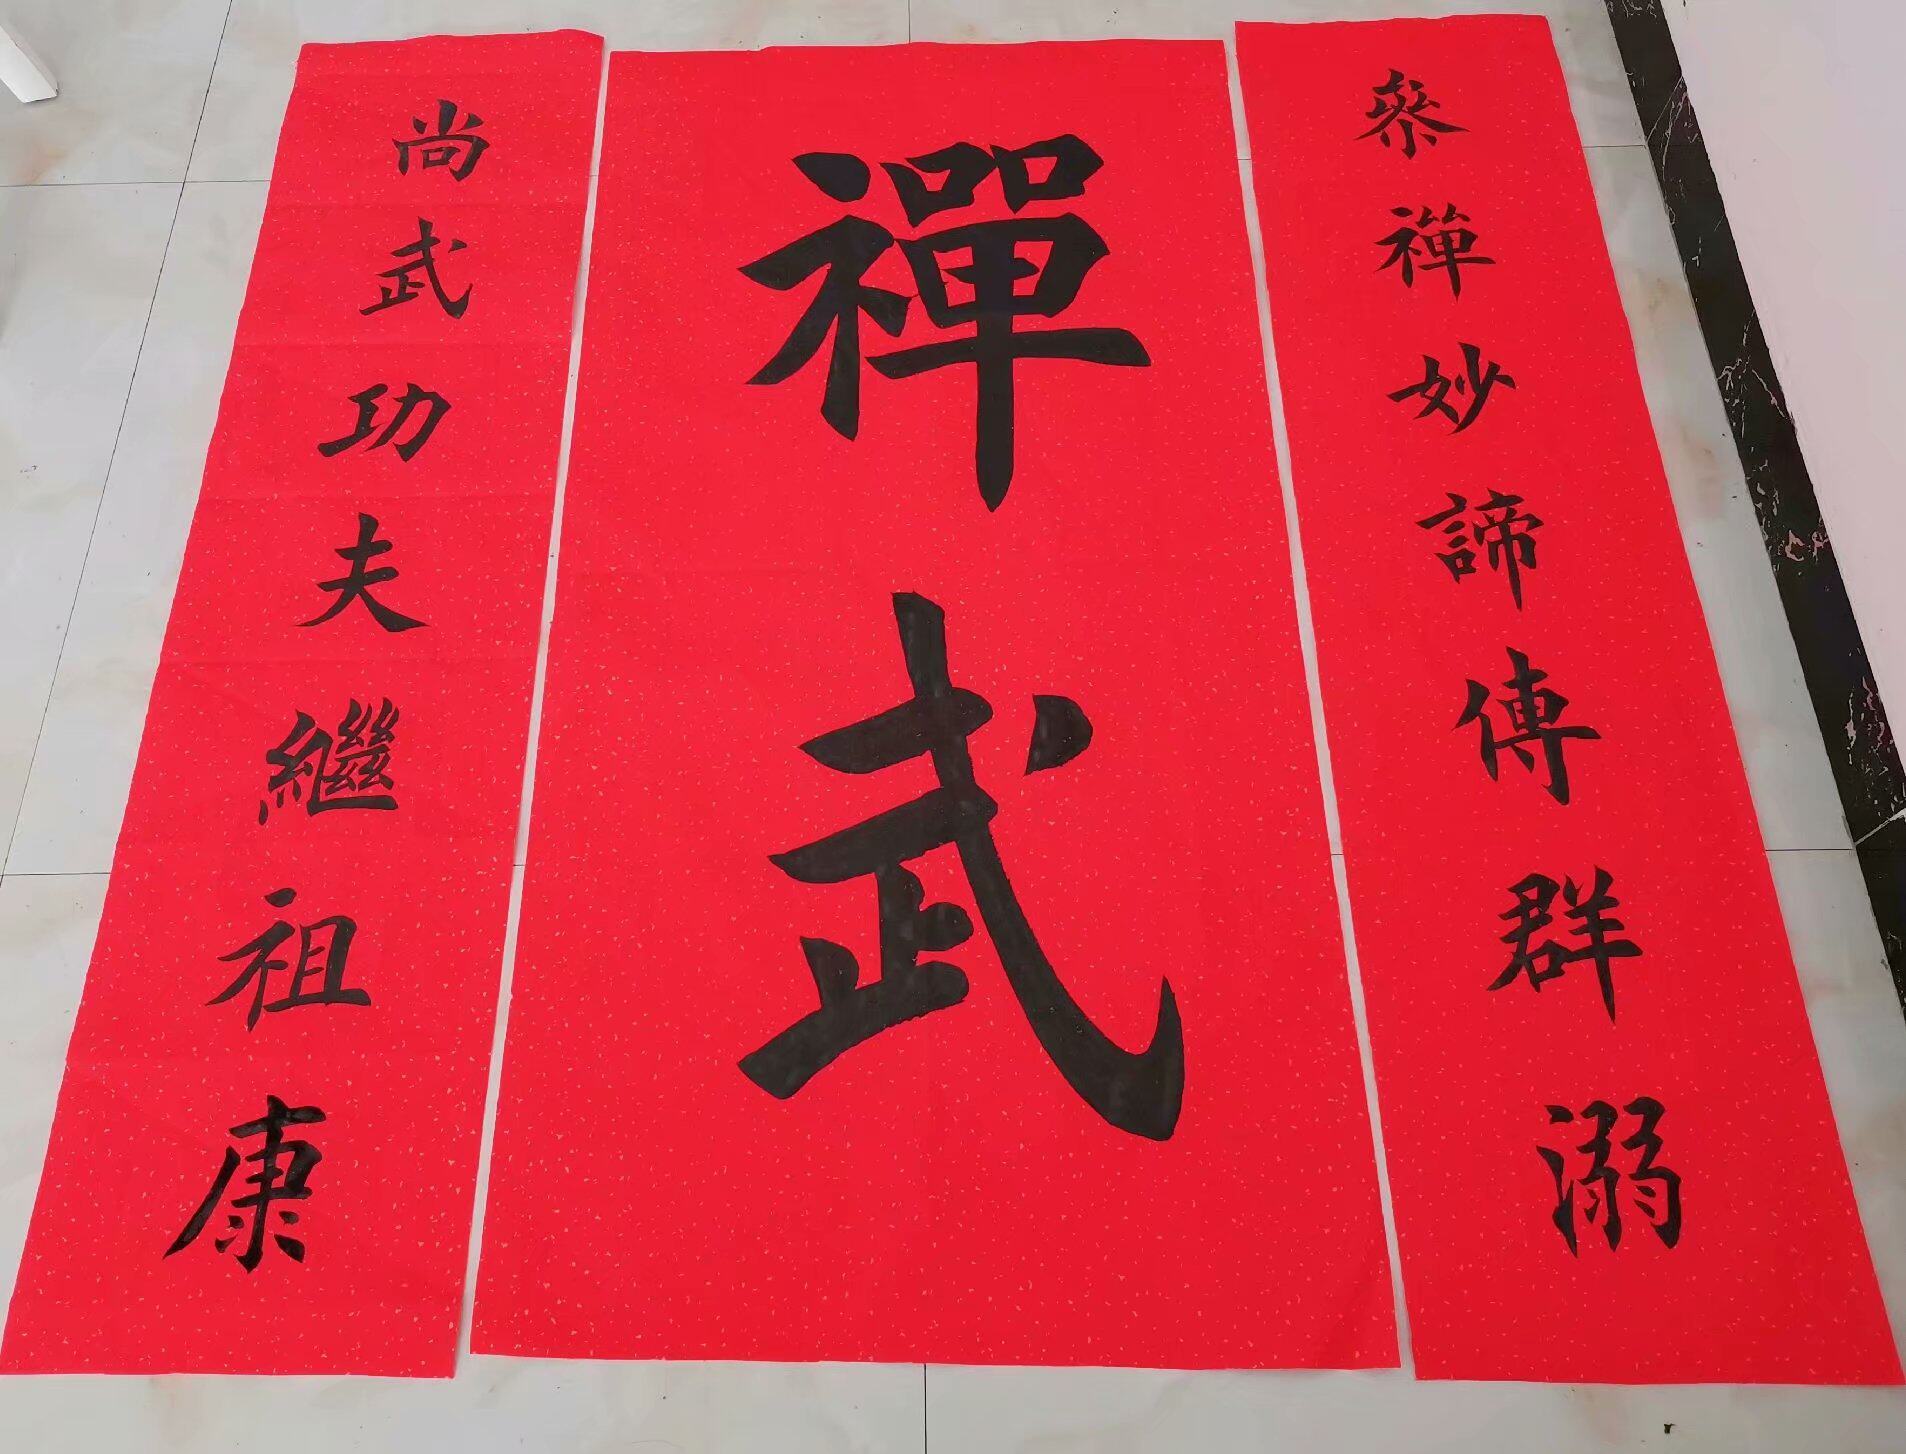 參禪妙諦傳群溺
禪武
尚武功夫繼祖康